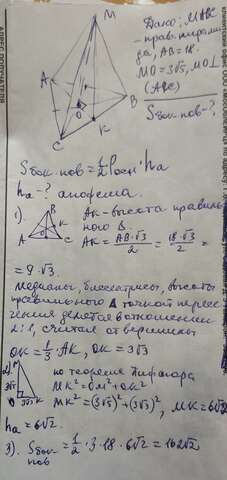 M
A
B
C
O
K
Дано: MABC
- прав. пирами-
да, AB=18.
MO=3√5, MO⊥
(ABC)
Sбок.нов-?
Sбок.нов = 1/2 Pосн · ha
ha -? апофема.
1).
B
K
A
C
AK - высота правиль-
ного Δ.
AK = AB·√3/2 = 18·√3/2 =
= 9·√3.
Медианы, биссектрисы, высоты
правильного Δ точкой пересе-
чения делятся в отношении
2:1, считая от вершины
OK = 1/3 AK, OK = 3√3
2)
M
3√5
O
3√3
K
по теореме Пифагора
MK² = OM² + OK²
MK² = (3√5)² + (3√3)², MK = 6√2
ha = 6√2.
3). Sбок.нов = 1/2 · 3 · 18 · 6√2 = 162√2